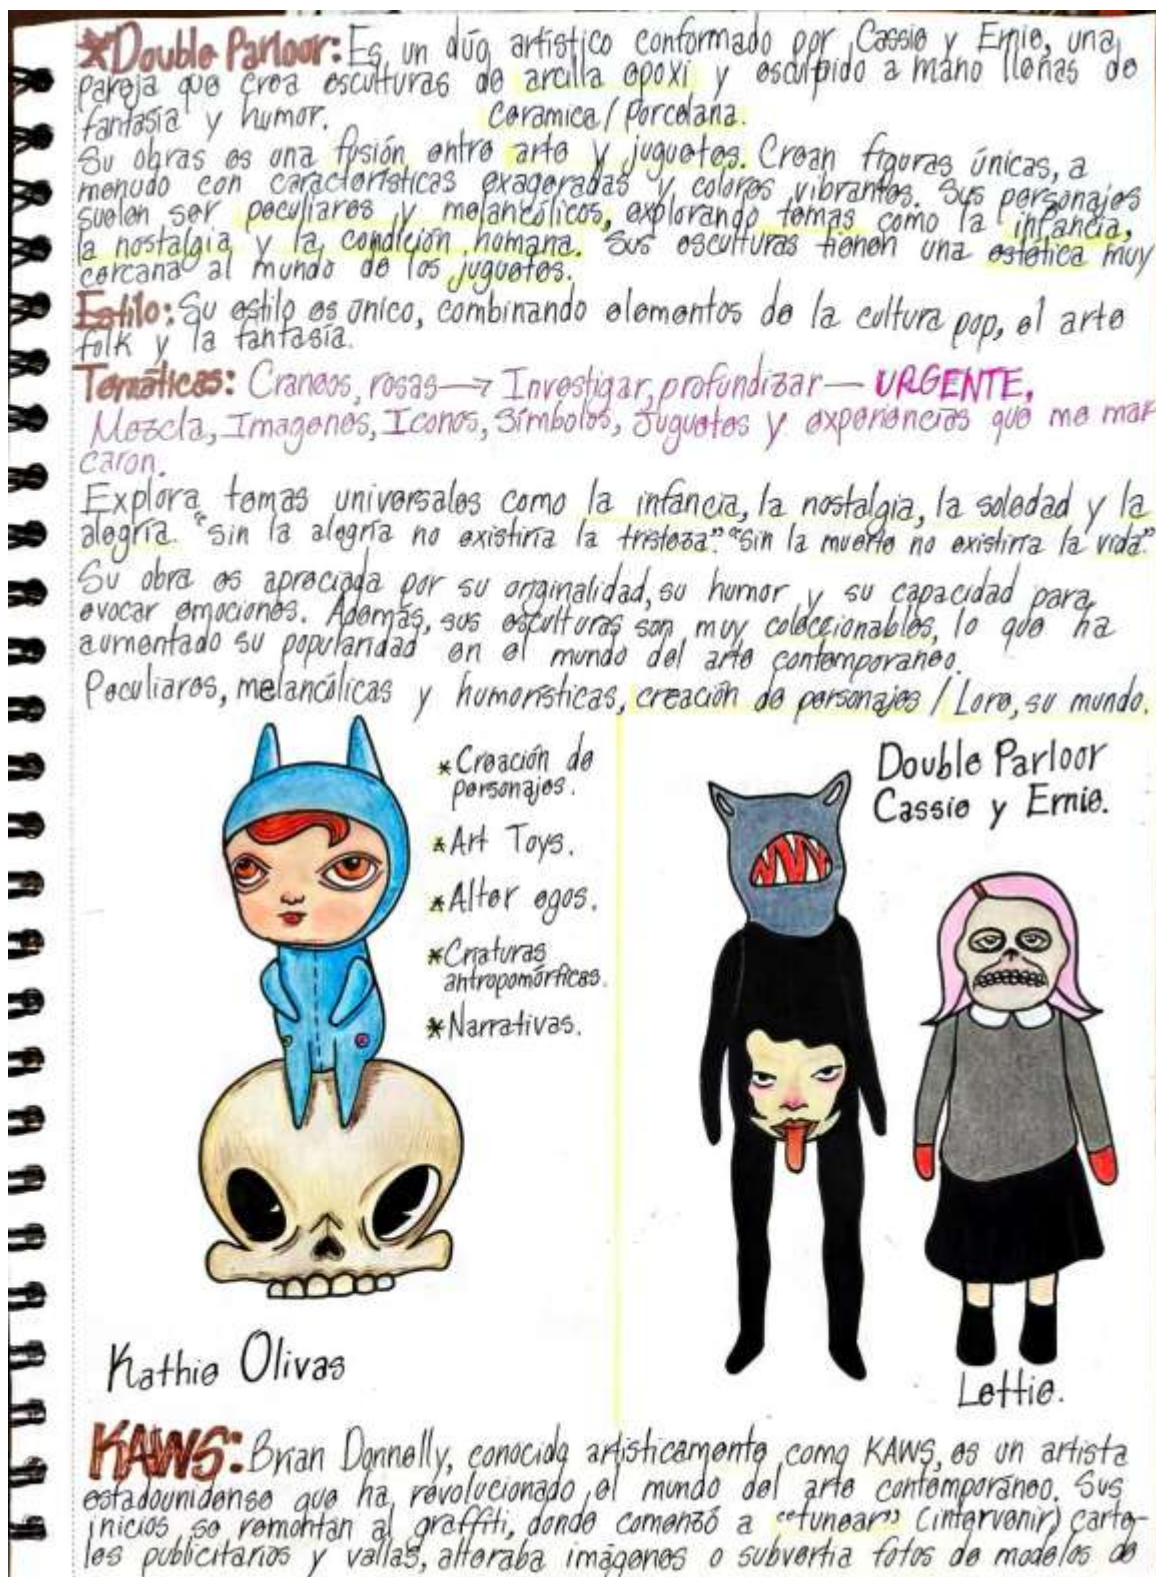 *Double Parloor: Es un dúo artistico conformado por Cassie y Ernie, una
pareja que crea esculturas de arcilla epoxi y esculpido a mano llenas de
fantasía y humor. Ceramica / Porcelana.
Su obras es una fusión entre arte y juguetes. Crean figuras únicas, a
menudo con características exageradas y colores vibrantes. Sus personajes
suelen ser peculiares y melancólicos, explorando temas como la infancia,
la nostalgia y la condición humana. Sus esculturas tienen una estética muy
cercana al mundo de los juguetes.
Estilo: Su estilo es único, combinando elementos de la cultura pop, el arte
folk y la fantasía.
Temáticas: Craneos, rosas → Investigar, profundizar — URGENTE,
Mezcla, Imagenes, Iconos, Símbolos, Juguetes y experiencias que me mar
caron.
Explora temas universales como la infancia, la nostalgia, la soledad y la
alegría. "Sin la alegría no existiria la tristeza". "Sin la muerte no existiria la vida."
Su obra es apreciada por su originalidad, su humor y su capacidad para
evocar emociones. Además, sus esculturas son muy coleccionables, lo que ha
aumentado su popularidad en el mundo del arte contemporaneo.
Peculiares, melancólicas y humorísticas, creación de personajes / Lore, su mundo.
*Creación de
personajes.
*Art Toys.
*Alter egos.
*Criaturas
antropomórficas.
*Narrativas.
Kathie Olivas
Double Parloor
Cassie y Ernie.
Lettie.
KAWS: Brian Donnelly, conocido artísticamente como KAWS, es un artista
estadounidense que ha revolucionado el mundo del arte contemporáneo. Sus
inicios se remontan al graffiti, donde comenzó a "tunear" (intervenir) carte-
les publicitarios y vallas, alteraba imágenes o subvertia fotos de modelos de